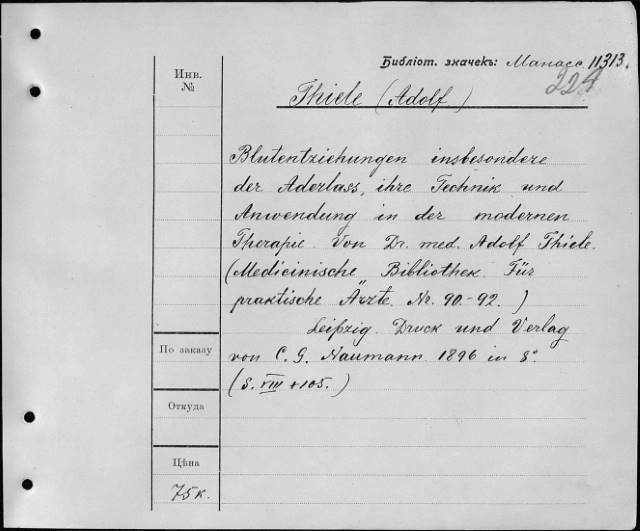 Библіот. значекъ: Манасс. 11313.
224
Инв. №
Thiele (Adolf.)
Blutentziehungen insbesondere
der Aderlass, ihre Technik und
Anwendung in der modernen
Therapie. Von Dr. med. Adolf Thiele.
(Medicinische Bibliothek. Für
praktische Ärzte. Nr. 90-92.)
Leipzig. Druck und Verlag
von C. G. Naumann. 1896 in 8°
(S. VIII + 105.)
По заказу
Откуда
Цѣна
75 к.